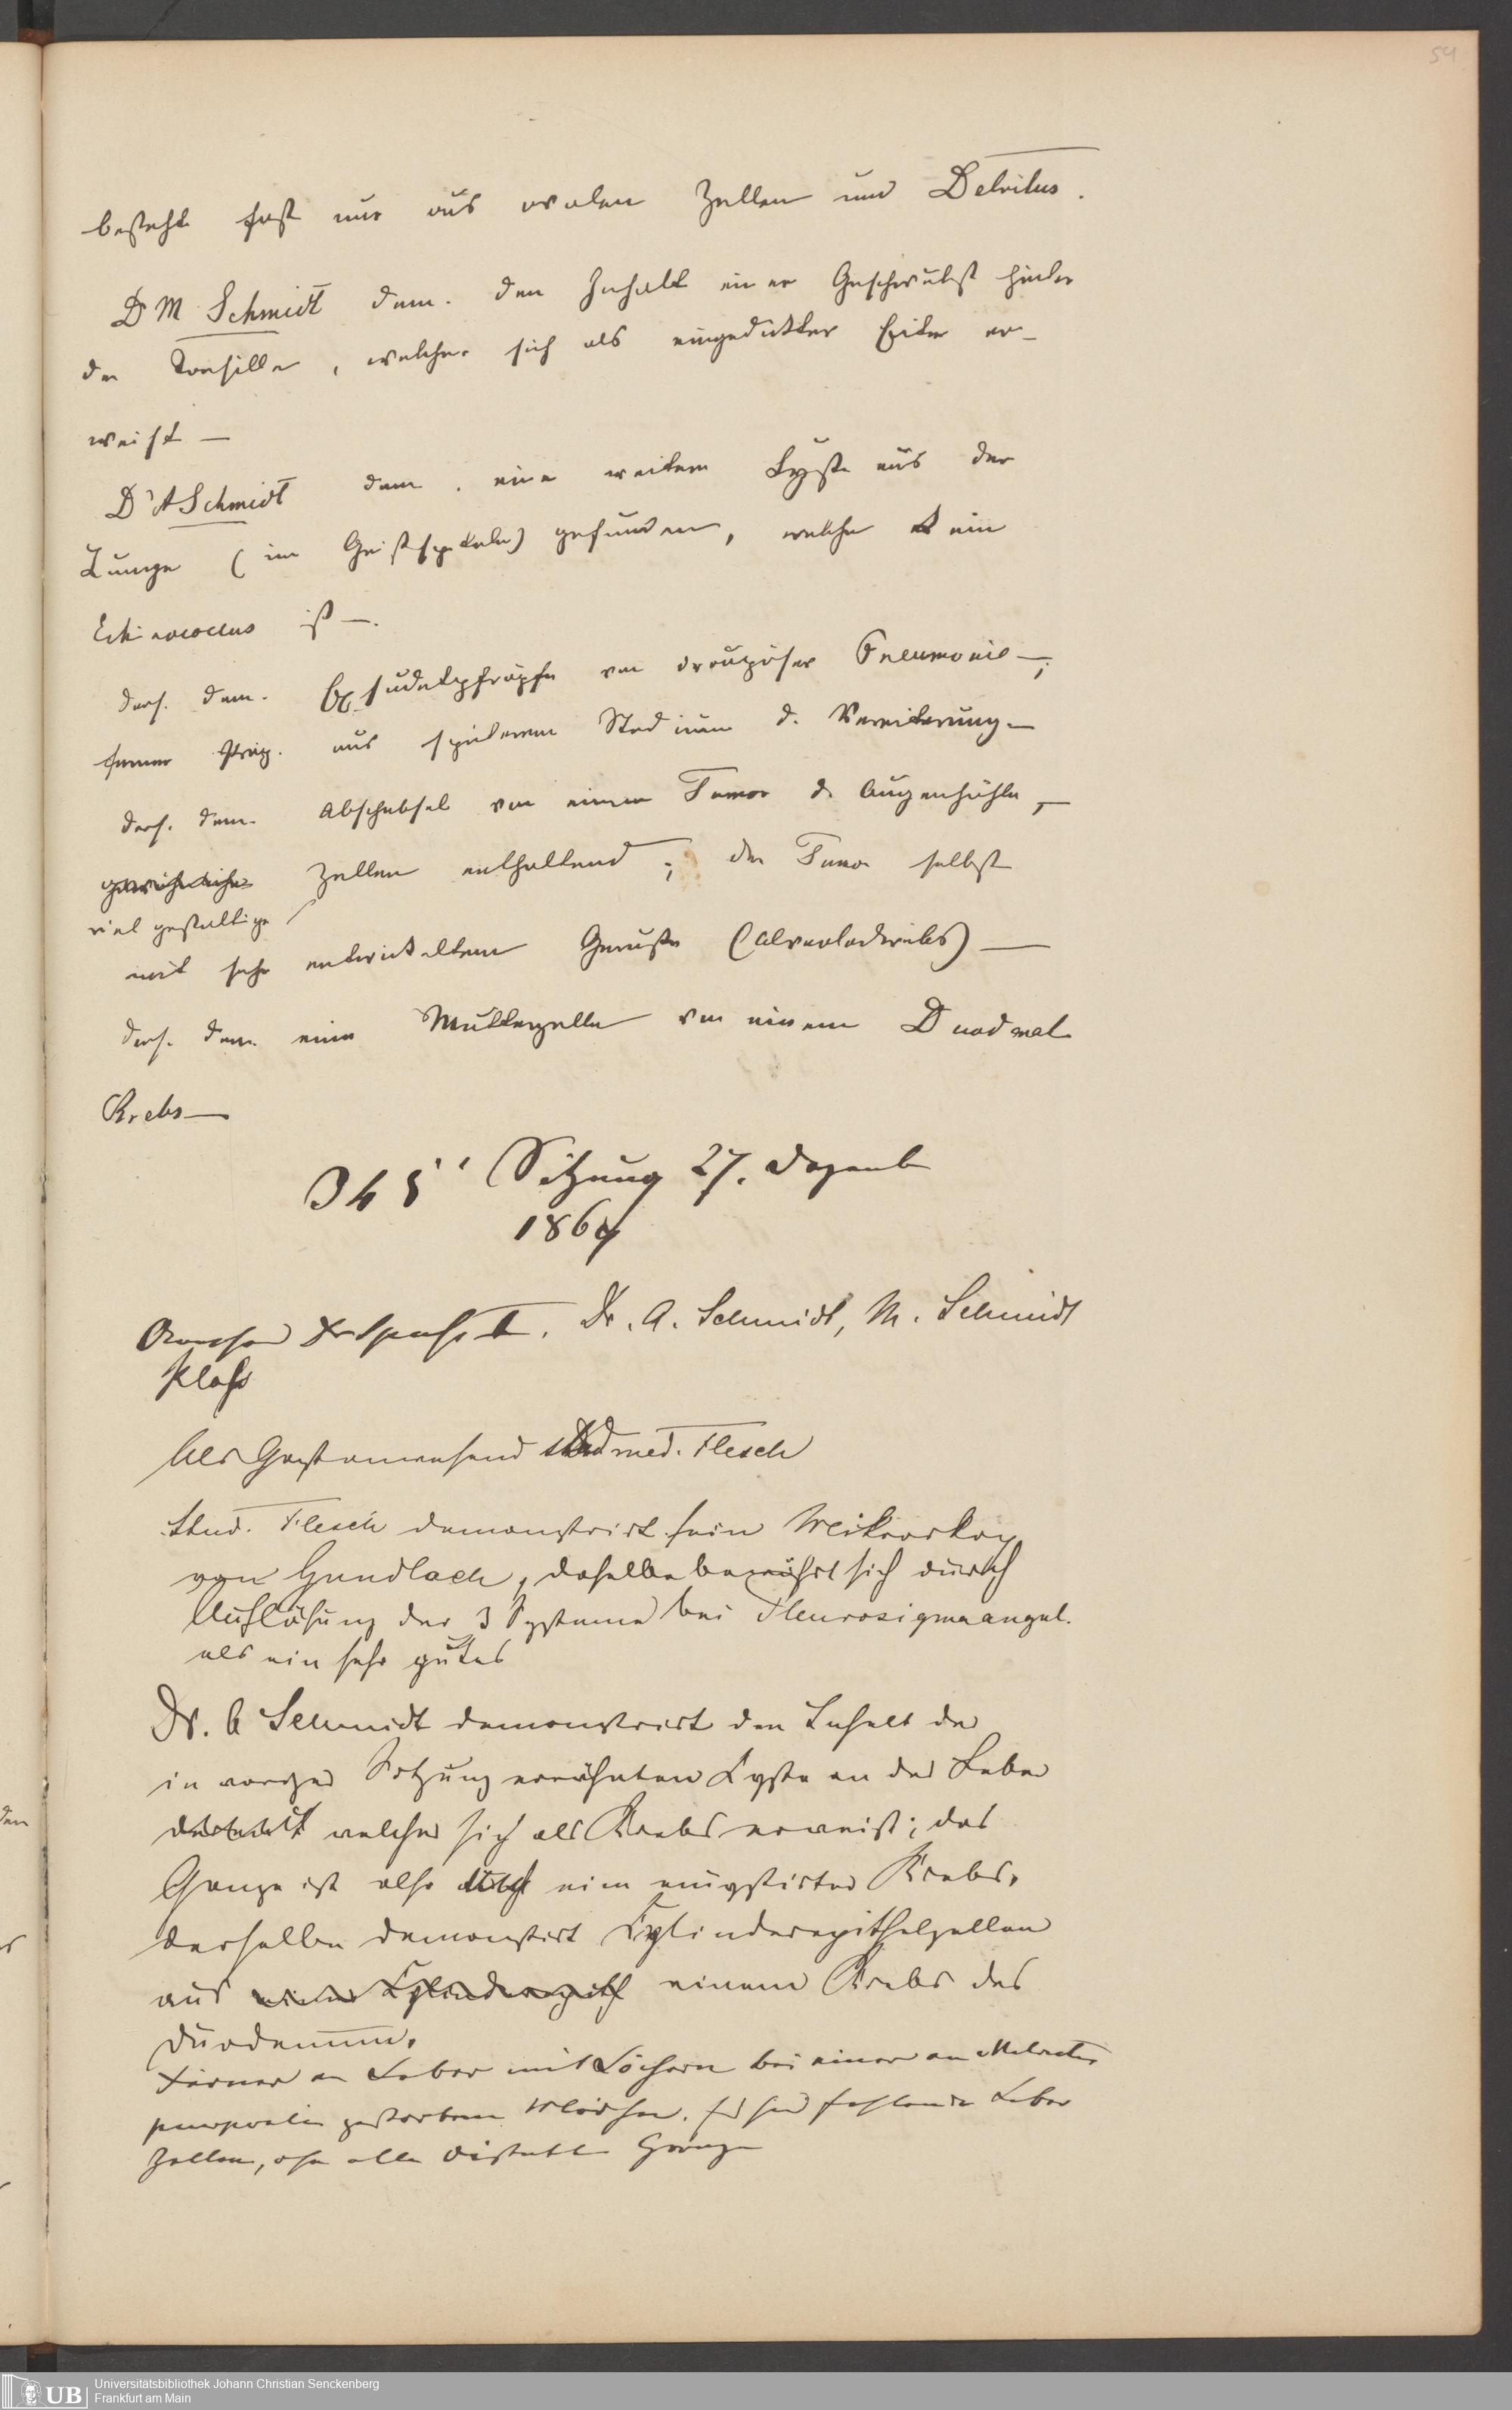 54
besteht fast nur aus ovalen Zellen und Detritus.
Dr M Schmidt dem. den Inhalt einer Geschwulst hinter
der Tonsille, welcher sich als eingedickter Eiter er-
weist —
Dr A Schmidt dem. eine weitere Cyste aus der
Lunge (im Geistspitale) gefunden, welche ein
Echinococcus ist —.
ders. dem. Exsudatpfröpfe von croupöser Pneumonie —;
ferner Präp. aus späterem Stadium d. Vereiterung. —
ders. dem. Abschabsel von einem Tumor d. Augenhöhle, —
Zellen enthaltend; der Tumor selbst
viel gestaltige
mit sehr entwickeltem Gerüste (Alveolarkrebs) —
ders. dem. eine Mutterzelle von einem Duodenal
Krebs —
345' Sitzung 27. Dezemb
1869
Anwesend Dr Spiess I. Dr. A. Schmidt, M. Schmidt
Kloß
Als Gast anwesend stud med. Flesch
Stud. Flesch demonstrirt sein Mikroskop
von Gundlach, dasselbe bewährt sich durch
Auflösung der 3 Systeme bei Pleurosigma angul.
als ein sehr gutes
Dr. A Schmidt demonstrirt den Inhalt der
in voriger Sitzung erwähnten Cyste an der Leber
welcher sich als Krebs erweist; das
Ganze ist also ein encystirter Krebs.
Derselbe demonstirt Cylinderepithelzellen
aus einer Cylinderepith einem Krebs des
Duodenum.
Ferner eine Leber mit Löchern bei einer an Metritis
puerperalis gestorbenen Wöchn. fehlende Leber
Zellen, ohne alle distincte Grenze
UB
Universitätsbibliothek Johann Christian Senckenberg
Frankfurt am Main